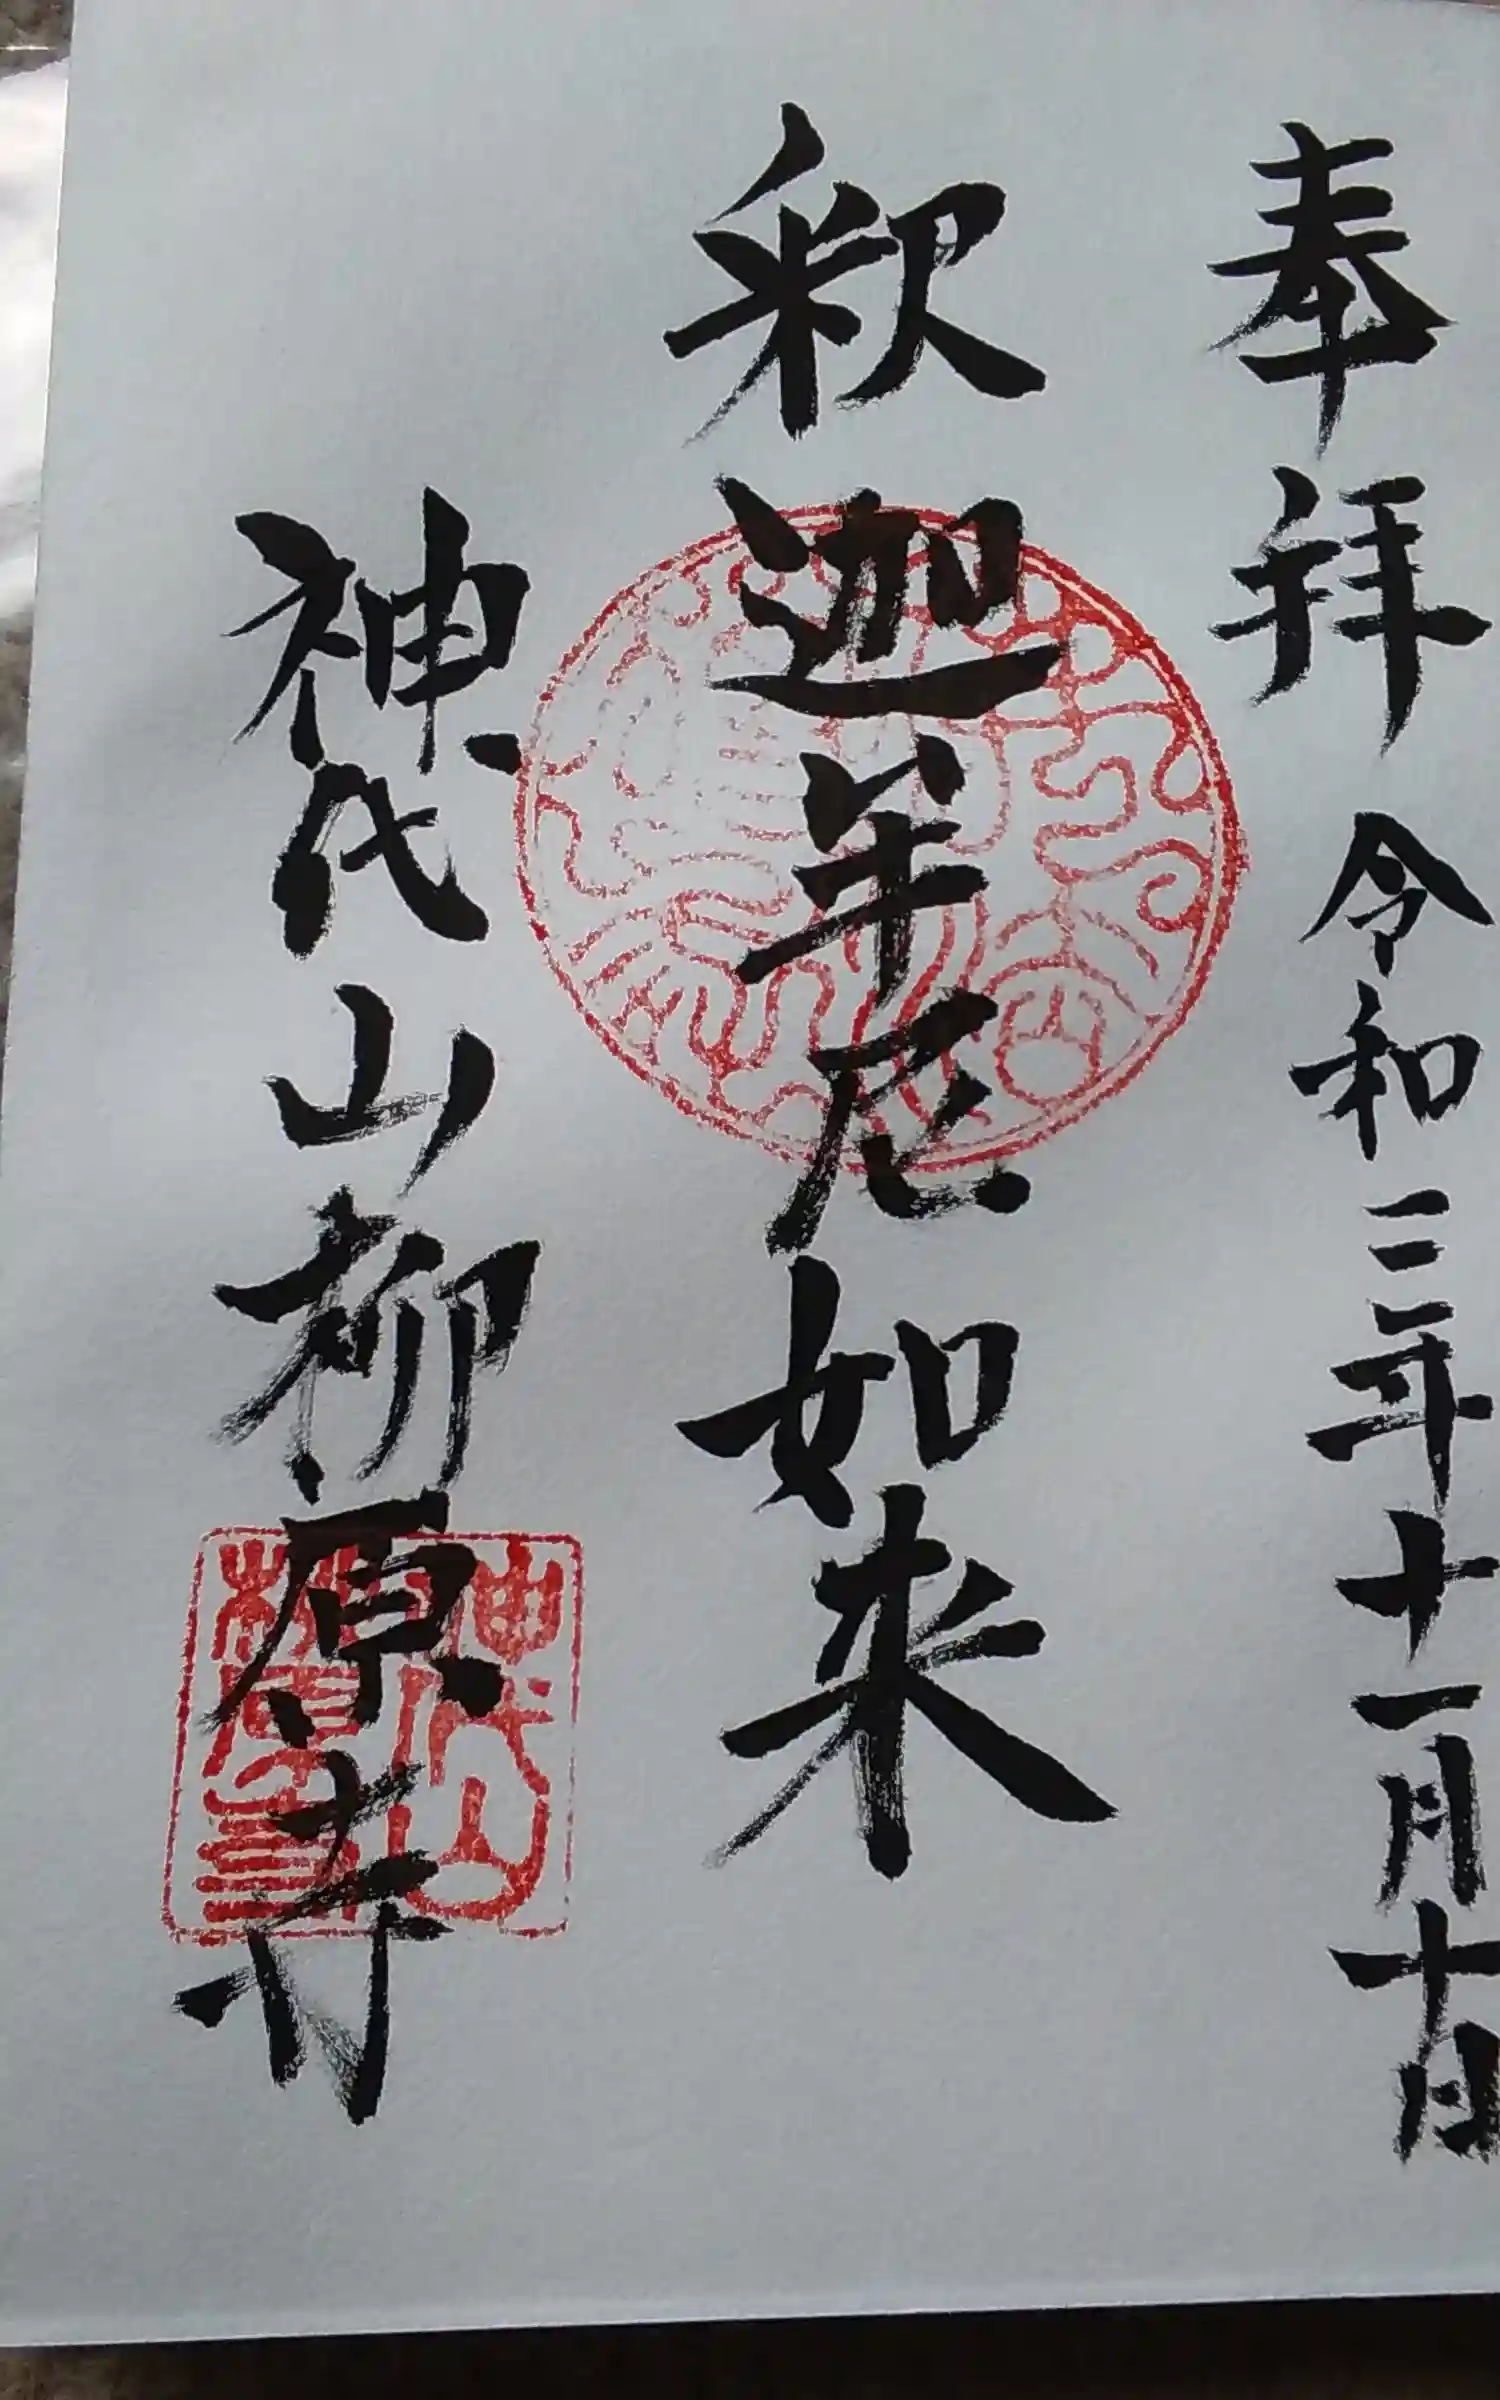 奉拝 令和三年十一月十日
釈迦牟尼如来
神代山柳原寺
神代山
柳原寺